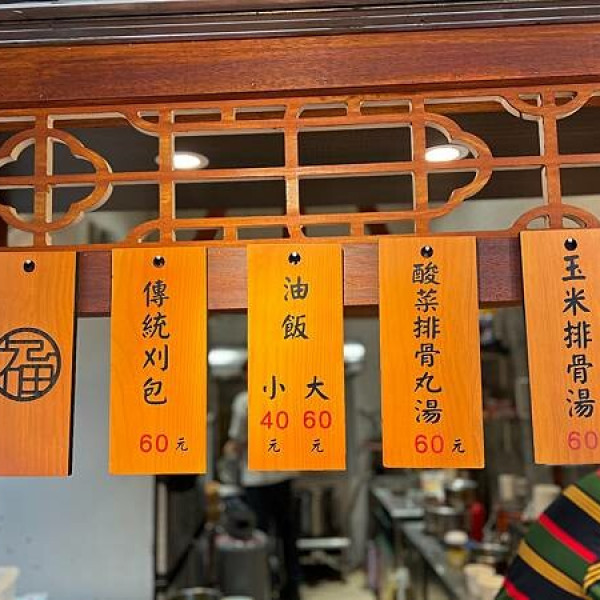 福
傳統刈包
60元
油飯
小 大
40元 60元
酸菜排骨丸湯
60元
玉米排骨湯
60